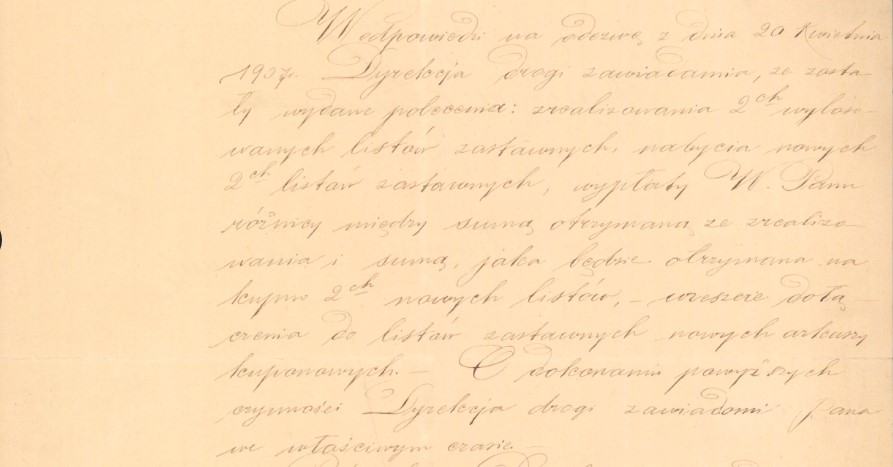 W odpowiedzi na odezwę z dnia 20 Kwietnia
1907r. Dyrekcja drogi zawiadamia, że zosta-
ły wydane polecenia: zrealizowania 2ch wyloso-
wanych listów zastawnych, nabycia nowych
2ch listów zastawnych, wypłaty W. Panu
różnicy między sumą otrzymaną ze zrealizo-
wania i sumą, jaka będzie otrzymana na
kupno 2ch nowych listów, - wreszcie dołą-
czenia do listów zastawnych nowych arkuszy
kuponowych. - O dokonaniu powyższych
czynności Dyrekcja drogi zawiadomi Pana
we właściwym czasie. -